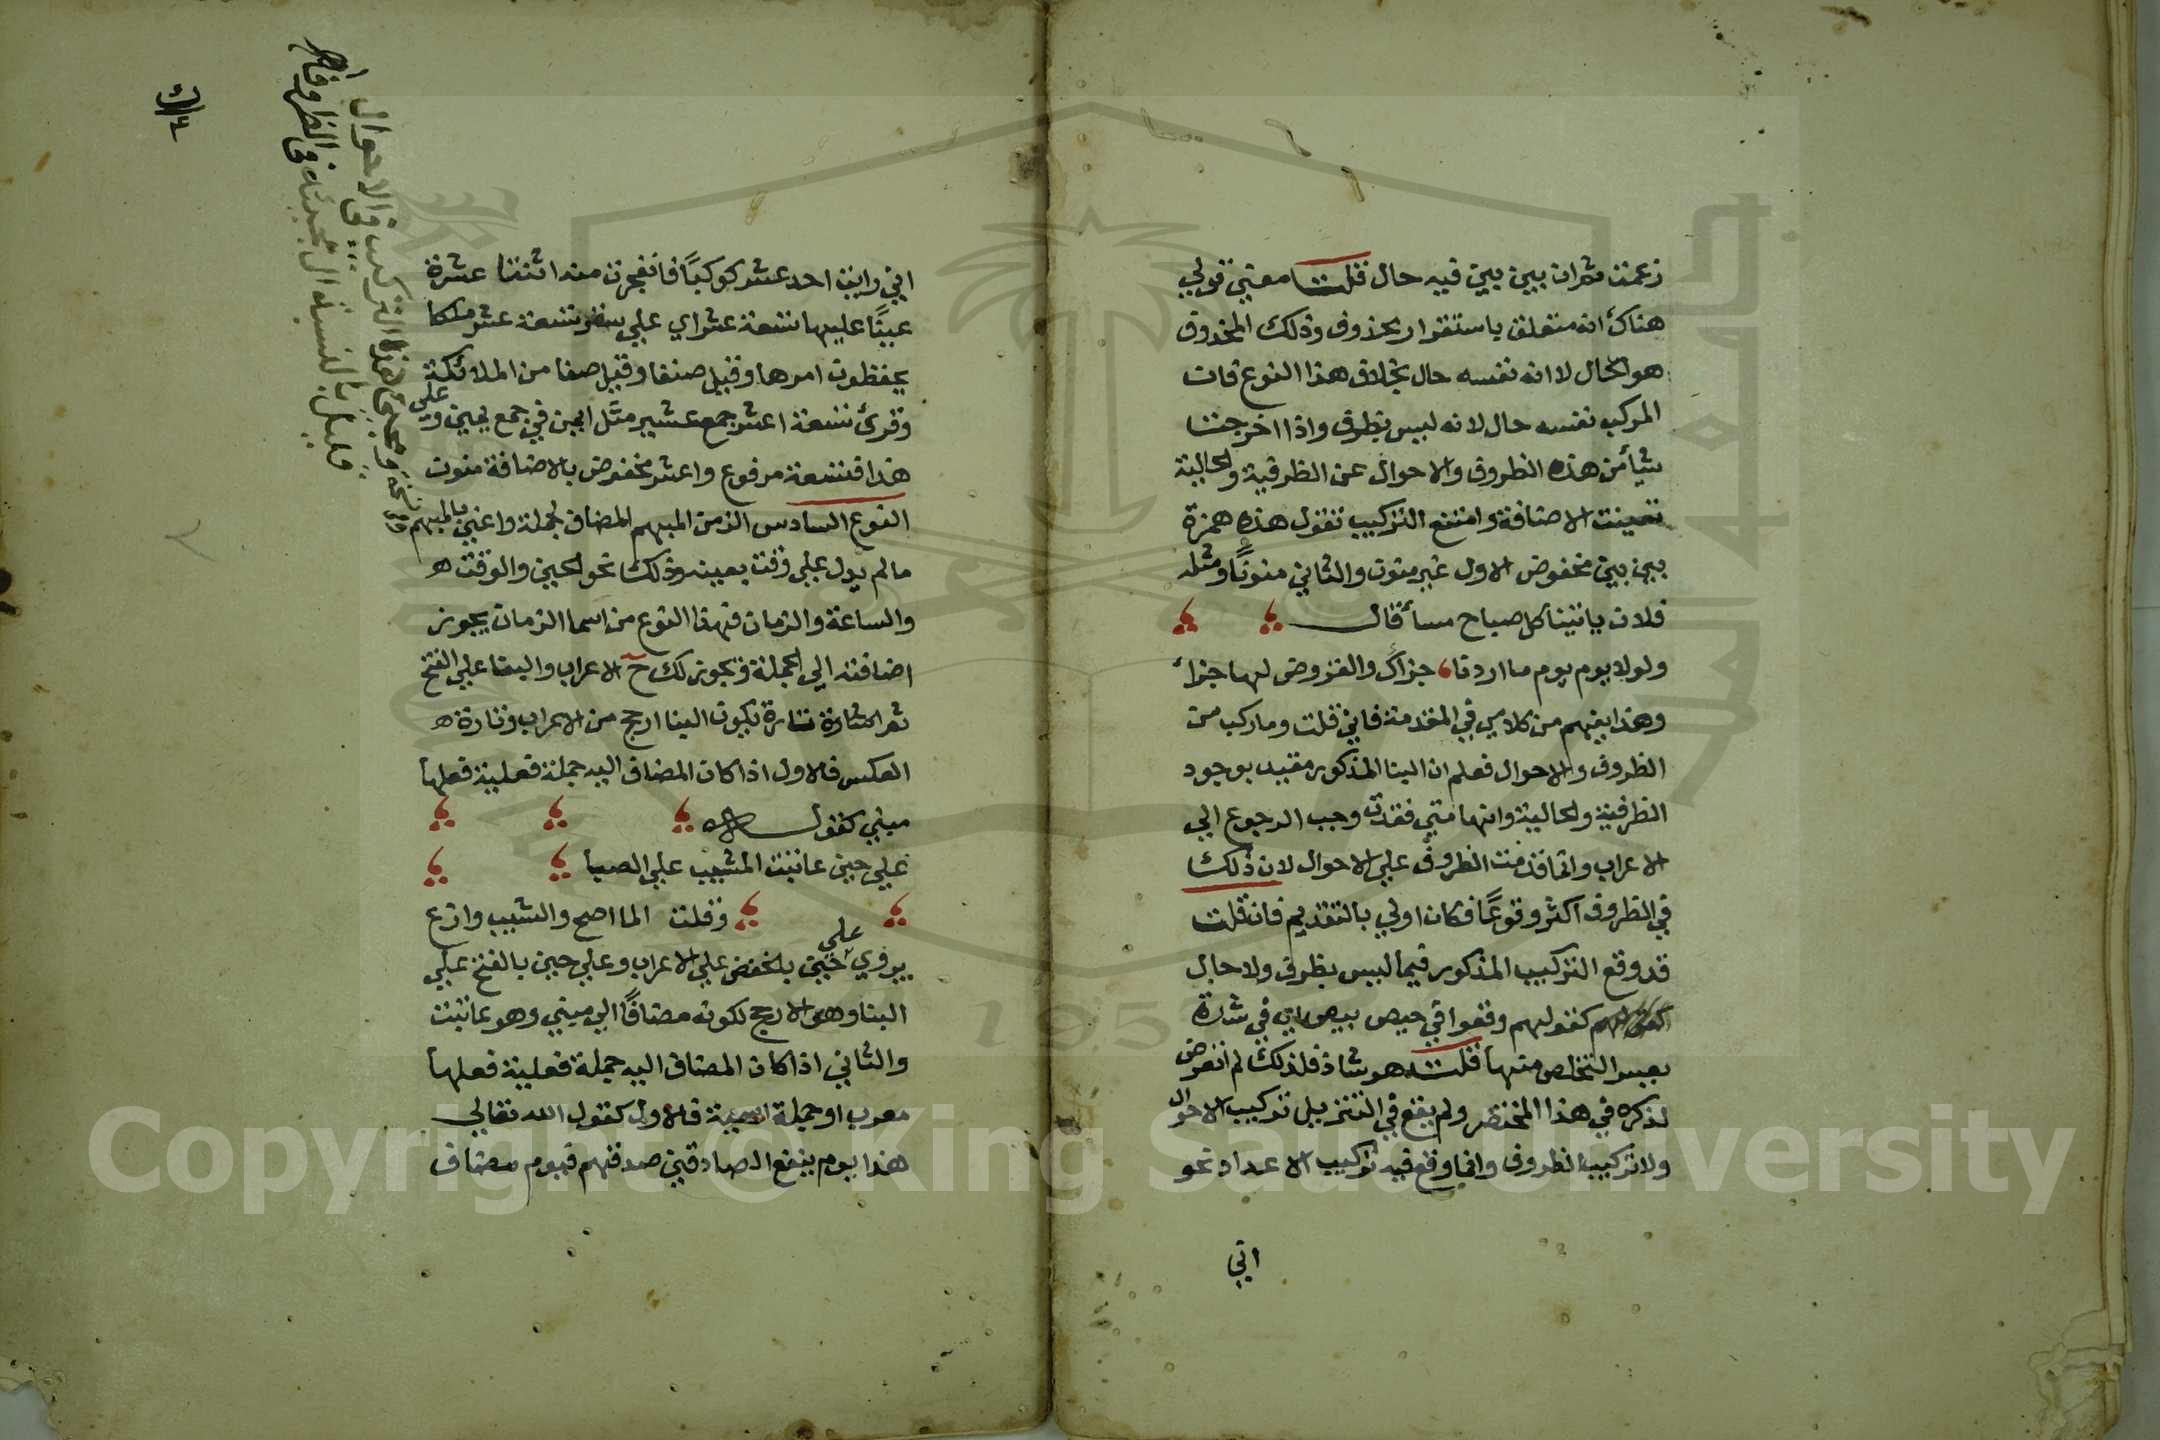 زعمت ثم ان بين بين فيه حال قلت معني قولي
هناك انه متعلق باستقرار محذوف وذلك المحذوف
هو الحال لا انه نفسه حال بخلاف هذا النوع فان
المركب نفسه حال لانه ليس بظرف واذا اخرجت
شيأ من هذه الظروف والاحوال عن الظرفية والحالية
تعينت الاضافة وامتنع التركيب تقول هذه همزة
بين بين مخفوض الاول غير منون والثاني منونًا ومثله
فلان ياتينا كل صباح مسأ قال
ولولا يوم يوم ما اردنا جزاك والقروض لها جزاء
وهذا يفهم من كلامي في المقدمة فاني قلت وما ركب من
الظروف والاحوال فعلم ان البنا المذكور مقيد بوجود
الظرفية والحالية وانها متي فقدت وجب الرجوع الي
الاعراب وانما قدمت الظروف علي الاحوال لان ذلك
في الظروف اكثر وقوعًا فكان اولي بالتقديم فان قلت
قد وقع التركيب المذكور فيما ليس بظرف ولا حال
كقولهم وقعوا في حيص بيص اي في شدة
يعسر التخلص منها قلت هو شاذ فلذلك لم اتعرض
لذكره في هذا المختصر ولم يقع في التنزيل تركيب الاحوال
ولا تركيب الظروف وانما وقع فيه تركيب الاعداد نحو
اني
اني رايت احد عشر كوكبًا فانفجرت منه اثنتا عشرة
عينًا عليها تسعة عشر اي علي سقر تسعة عشر ملكا
يحفظون امرها وقيل صنفا وقيل صفا من الملائكة
وقرئ تسعة اعشر جمع عشير مثل ايمن في جمع يمين وعلي
هذا فتسعة مرفوع واعشر مخفوض بالاضافة منون
النوع السادس الزمن المبهم المضاف لجملة واعني بالمبهم
ما لم يدل علي وقت بعينه وذلك نحو الحين والوقت
والساعة والزمان فهذا النوع من اسما الزمان يجوز
اضافته الي الجملة ويجوز لك ح الاعراب والبنا علي الفتح
ثم تارة يكون البنا ارجح من الاعراب وتارة
العكس فالاول اذا كان المضاف اليه جملة فعلية فعلها
مبني كقول
علي حين عاتبت المشيب علي الصبا
وقلت الما اصح والشيب وازع
يروي علي حين بالخفض علي الاعراب وعلي حين بالفتح علي
البنا وهو الارجح لكونه مضافًا الي مبني وهو عاتبت
والثاني اذا كان المضاف اليه جملة فعلية فعلها
معرب او جملة اسمية فالاول كقول الله تعالي
هذا يوم ينفع الصادقين صدقهم فيوم مضاف
Copyright © King Saud University